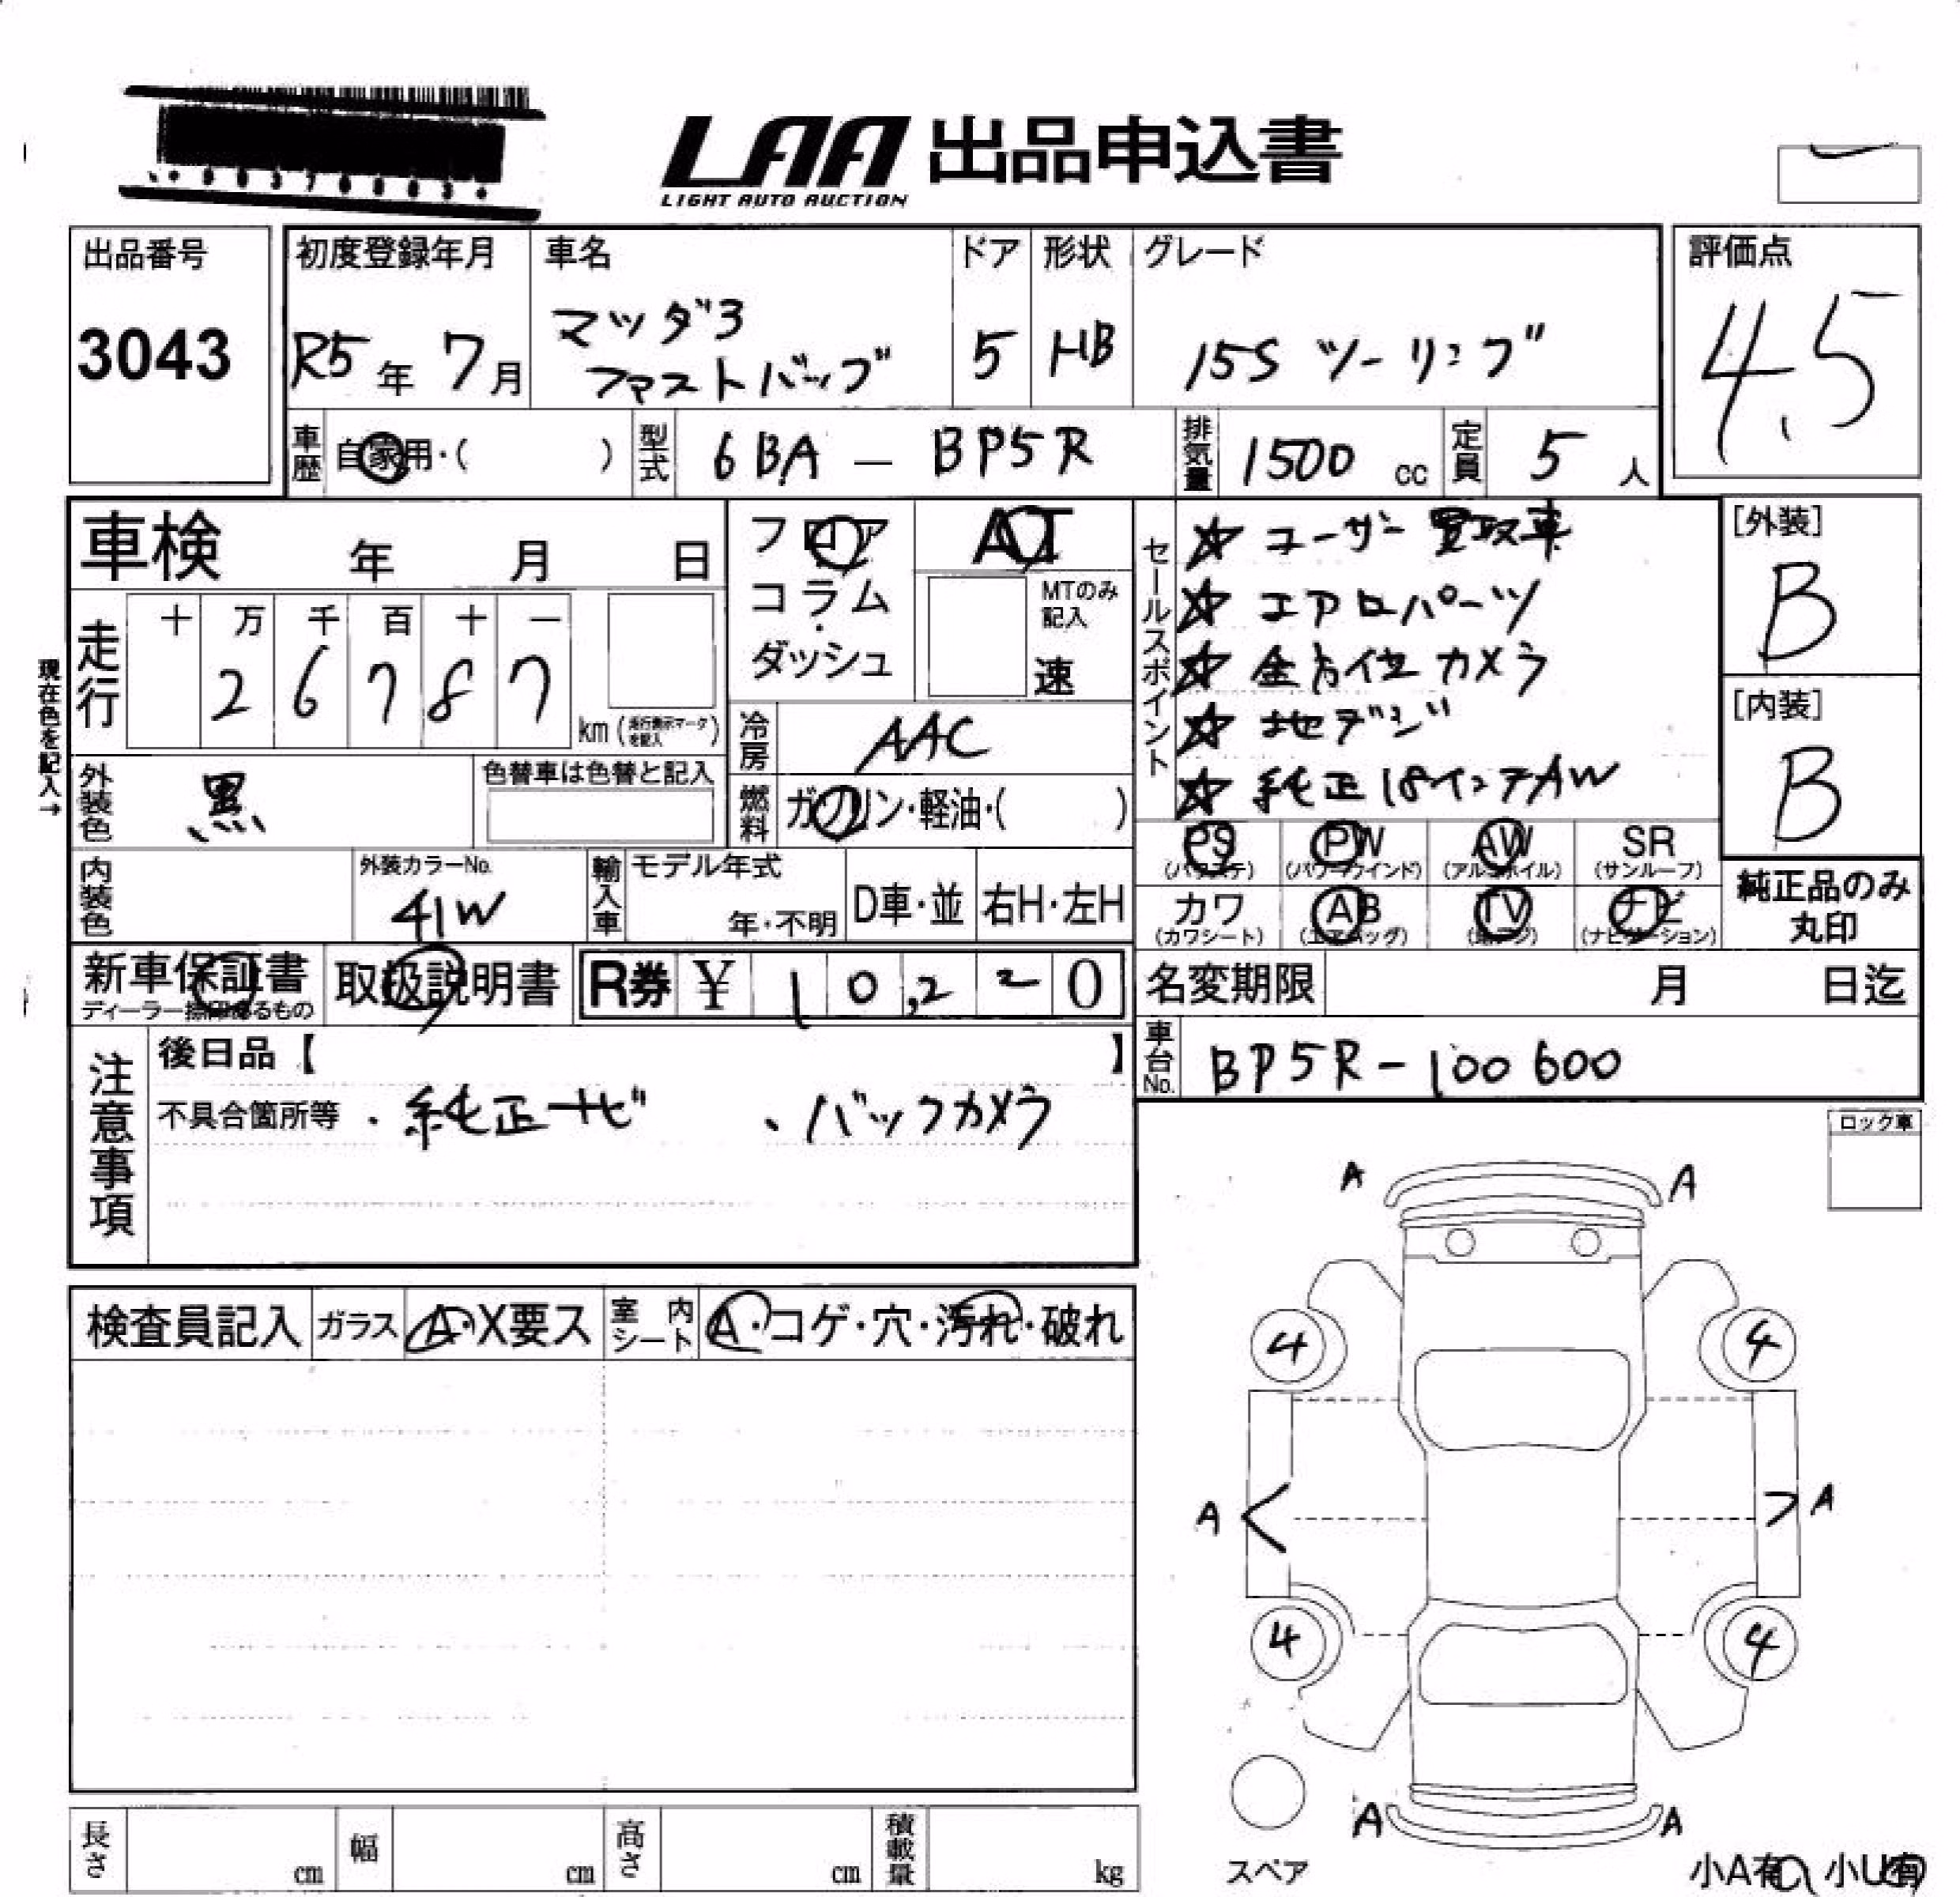 LAA 出品申込書
LIGHT AUTO AUCTION
出品番号
3043
初度登録年月
R5年 7月
車名
マツダ3
ファストバック
ドア
5
形状
HB
グレード
15S ツーリング
評価点
4.5
車歴 自家用・( )
型式 6BA － BP5R
排気量 1500 cc
定員 5 人
車検 年 月 日
フロア
コラム
・
ダッシュ
AT
MTのみ
記入
速
セールスポイント
☆ ユーザー買取車
☆ エアロパーツ
☆ 全方位カメラ
☆ 地デジ
☆ 純正18インチAW
[外装]
B
[内装]
B
現在色を記入→
走行
十 万 千 百 十 一
2 6 7 8 7
km (走行表示マークを記入)
冷房 AAC
外装色 黒
色替車は色替と記入
燃料 ガソリン・軽油・( )
PS
(パワステ)
PW
(パワーウインド)
AW
(アルミホイル)
SR
(サンルーフ)
カワ
(カワシート)
AB
(エアバッグ)
TV
(地デジ)
ナビ
(ナビゲーション)
純正品のみ
丸印
内装色
外装カラーNo.
41W
輸入車
モデル年式
年・不明
D車・並
右H・左H
新車保証書
取扱説明書
R券 ¥ 10,220
名変期限 月 日迄
車台No. BP5R-100600
注意事項
後日品【 】
不具合箇所等 ・純正ナビ ・バックカメラ
ロック車
検査員記入
ガラス A・X要ス
室内シート A・コゲ・穴・汚れ・破れ
A A
4 4
A A
4 4
A A
スペア
小A有 小U有
長さ cm
幅 cm
高さ cm
積載量 kg